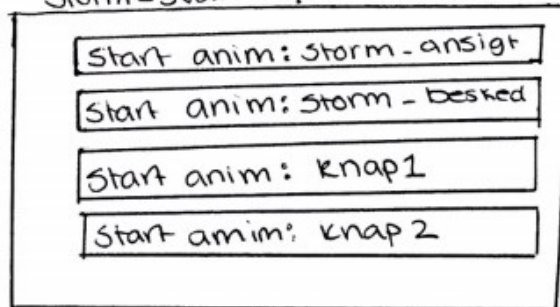 Start anim: Storm_ansigt
Start anim: Storm_besked
Start anim: knap1
Start amim: knap 2